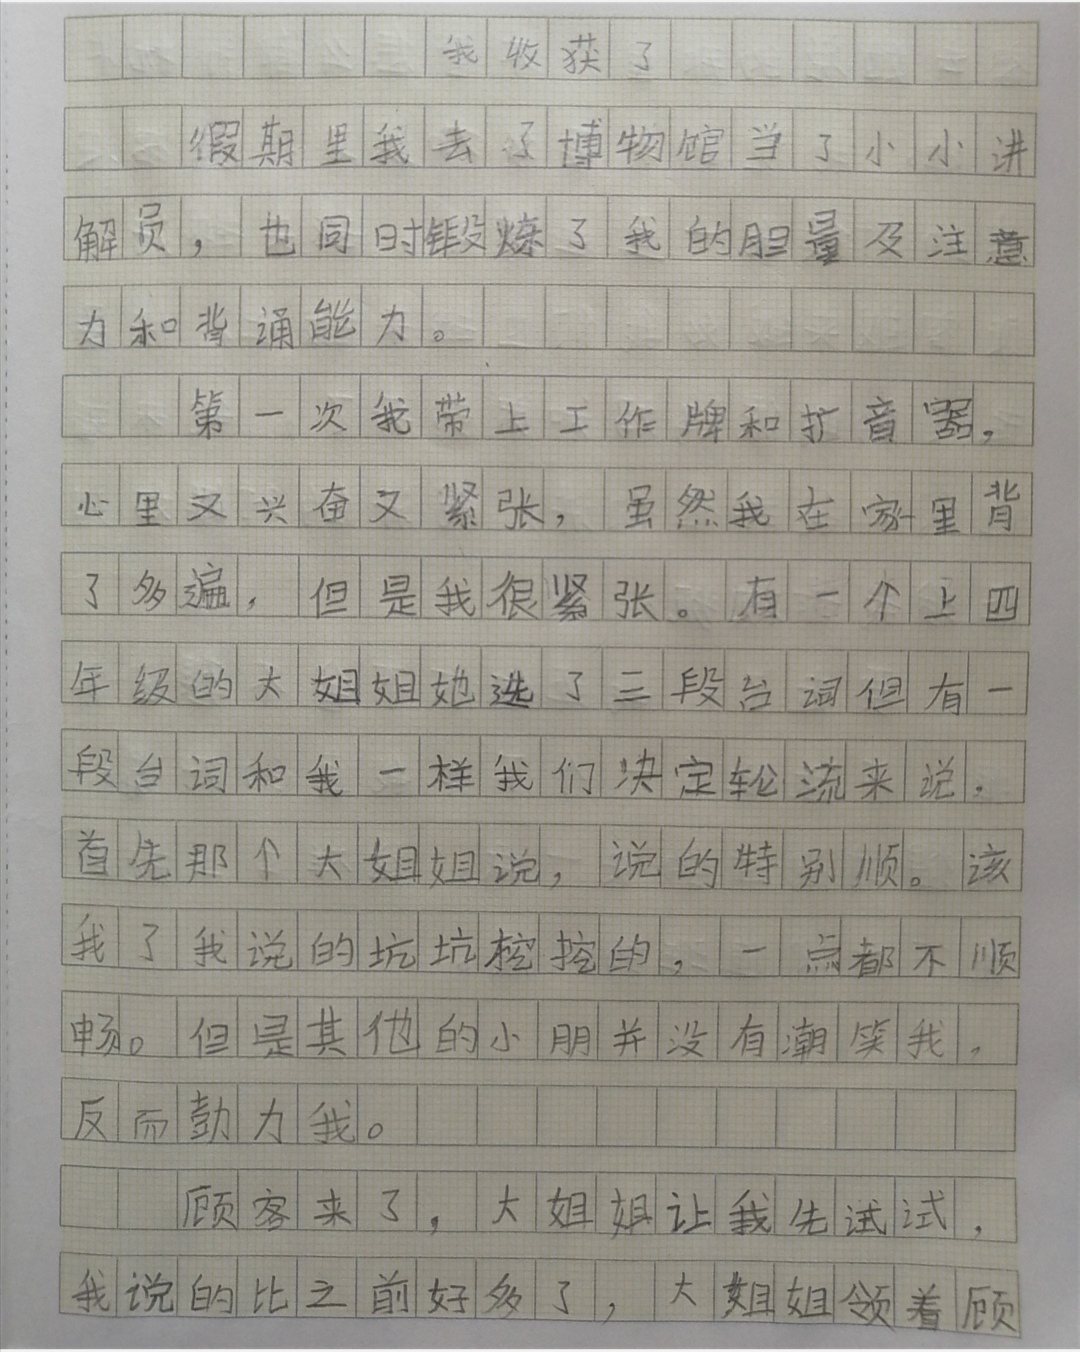 我收获了
假期里我去了博物馆当了小小讲
解员，也同时锻炼了我的胆量及注意
力和背诵能力。
第一次我带上工作牌和扩音器，
心里又兴奋又紧张，虽然我在家里背
了多遍，但是我很紧张。有一个上四
年级的大姐姐她选了三段台词但有一
段台词和我一样我们决定轮流来说，
首先那个大姐姐说，说的特别顺。该
我了我说的坑坑挖挖的，一点都不顺
畅。但是其他的小朋并没有潮笑我，
反而鼓力我。
顾客来了，大姐姐让我先试试，
我说的比之前好多了，大姐姐领着顾